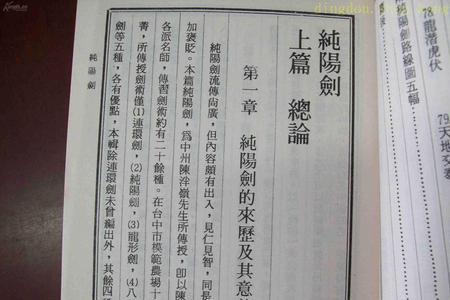 純陽劍
上篇　總論
第一章　純陽劍的來歷及其意
純陽劍流傳尚廣，但內容頗有出入，見仁見智，同是
加褒貶。本篇純陽劍，為中州陳泮嶺先生所傳授，卽以陳
各派名師，傳習劍術約有二十餘種。在台中市模範農場十
菁，所傳授劍術僅(1)連環劍，(2)純陽劍，(3)龍形劍，(4)八
劍等五種，各有優點，本輯除連環劍未曾編出外，其餘四種
純陽劍
龍潛虎伏
陽劍路線圖五幅
79.
天地交泰